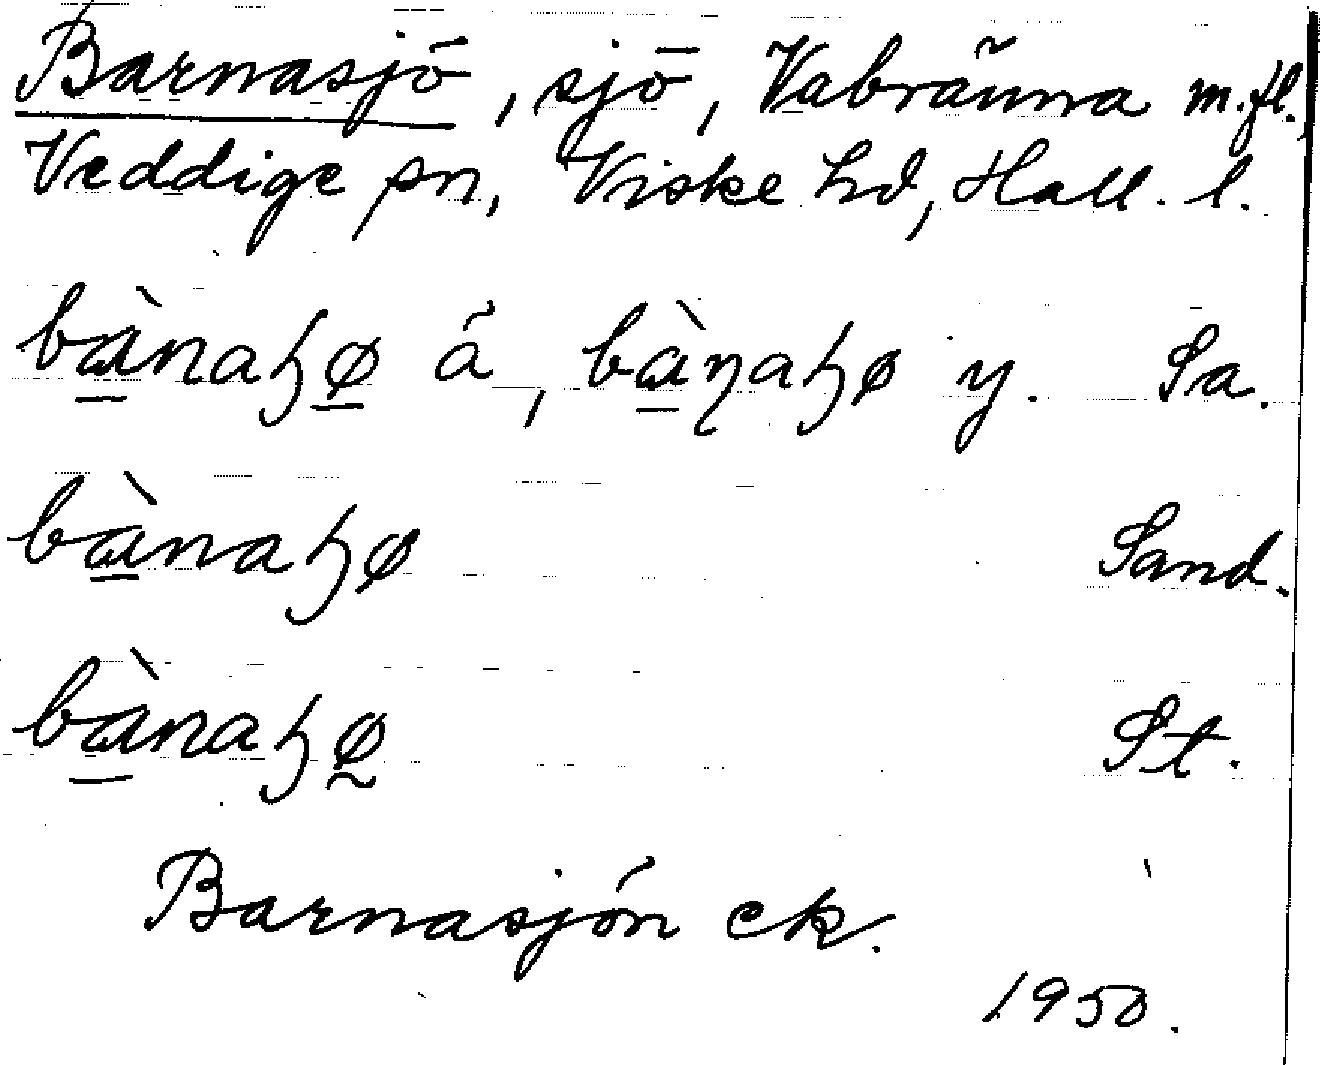 Barnasjö, sjö, Vabränna m.fl.,
Veddige sn, Viske hd, Hall. l.
bànaꜧø̠ ä, bàn̡aꜧø y. Sa.
bànaꜧø Sand.
bànaꜧø̰ St.
Barnasjön ek.
1950.